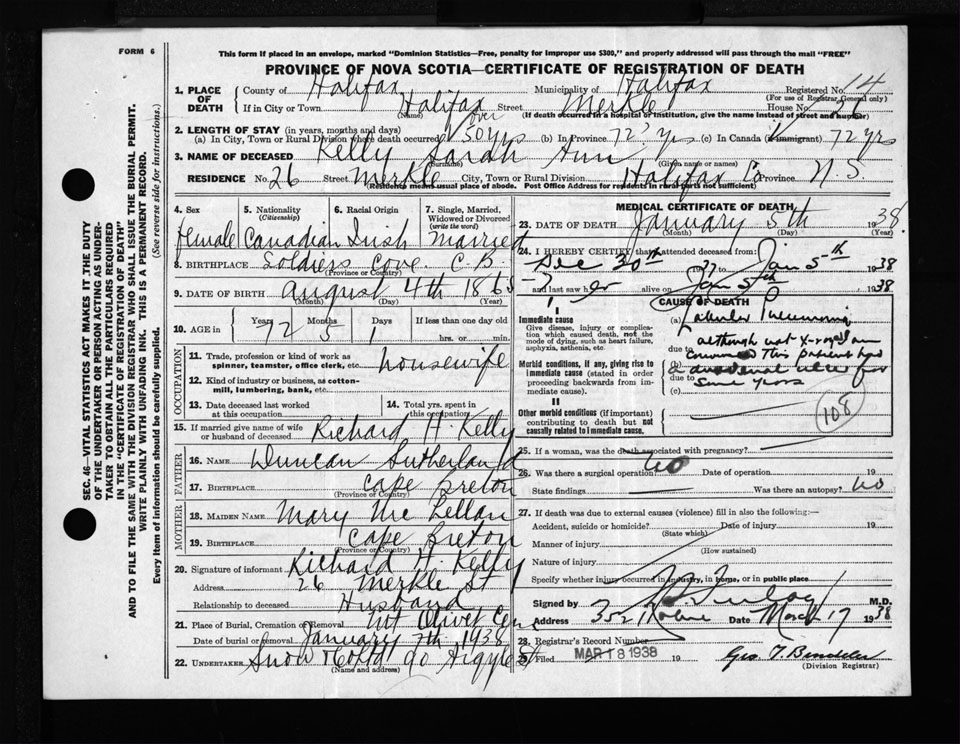 FORM 6
This form if placed in an envelope, marked "Dominion Statistics—Free, penalty for improper use $300," and properly addressed will pass through the mail "FREE"
PROVINCE OF NOVA SCOTIA—CERTIFICATE OF REGISTRATION OF DEATH
SEC. 46—VITAL STATISTICS ACT MAKES IT THE DUTY
OF THE UNDERTAKER OR PERSON ACTING AS UNDER-
TAKER TO OBTAIN ALL THE PARTICULARS REQUIRED
IN THE "CERTIFICATE OF REGISTRATION OF DEATH"
AND TO FILE THE SAME WITH THE DIVISION REGISTRAR WHO SHALL ISSUE THE BURIAL PERMIT.
WRITE PLAINLY WITH UNFADING INK. THIS IS A PERMANENT RECORD.
Every item of information should be carefully supplied. (See reverse side for instructions.)
1. PLACE OF DEATH County of Halifax Municipality of Halifax Registered No. 14
(For use of Registrar General only)
If in City or Town Halifax Street Merkle House No. 26
(Name) (If death occurred in a hospital or institution, give the name instead of street and number)
2. LENGTH OF STAY (in years, months and days)
(a) In City, Town or Rural Division where death occurred over 50 yrs (b) In Province 72 yrs (c) In Canada (if immigrant) 72 yrs
3. NAME OF DECEASED Kelly Sarah Ann
(Surname) (Given name or names)
RESIDENCE No. 26 Street Merkle City, Town or Rural Division Halifax Co Province N.S.
(Residence means usual place of abode. Post Office Address for residents in rural parts not sufficient)
4. Sex female
5. Nationality (Citizenship) Canadian
6. Racial Origin Irish
7. Single, Married, Widowed or Divorced (write the word) married
8. BIRTHPLACE Soldiers Cove C.B.
(Province or Country)
9. DATE OF BIRTH August 4th 1865
(Month) (Day) (Year)
10. AGE in Years 72 Months 5 Days 1 If less than one day old
hrs. or min.
OCCUPATION
11. Trade, profession or kind of work as spinner, teamster, office clerk, etc. housewife
12. Kind of industry or business, as cotton-mill, lumbering, bank, etc.
13. Date deceased last worked at this occupation
14. Total yrs. spent in this occupation
15. If married give name of wife or husband of deceased Richard H. Kelly
FATHER
16. Name Duncan Sutherland
17. Birthplace Cape Breton
(Province or Country)
MOTHER
18. Maiden Name Mary Mc Lellan
19. Birthplace Cape Breton
(Province or Country)
20. Signature of informant Richard H. Kelly
Address 26 Merkle St
Relationship to deceased Husband
21. Place of Burial, Cremation or Removal Mt Olivet Cem
Date of burial or removal January 7th 1938
22. Undertaker Snow & Co Ltd 90 Argyle St
MEDICAL CERTIFICATE OF DEATH
23. DATE OF DEATH January 5th 1938.
(Month) (Day) (Year)
24. I HEREBY CERTIFY that I attended deceased from
Dec 30th 1937 Jan 5th 1938
and last saw her alive on Jan 5th 1938
I
Immediate cause
Give disease, injury or complication which caused death, not the mode of dying, such as heart failure, asphyxia, asthenia, etc.
Morbid conditions, if any, giving rise to immediate cause (stated in order proceeding backwards from immediate cause).
II
Other morbid conditions (if important) contributing to death but not causally related to immediate cause.
CAUSE OF DEATH
(a) Lobular Pneumonia
due to although not x-rayed am
(b) convinced This patient had
due to a duodenal ulcer for
(c) some years
108
25. If a woman, was the death associated with pregnancy?
26. Was there a surgical operation? no Date of operation 19
State findings Was there an autopsy? no
27. If death was due to external causes (violence) fill in also the following:—
Accident, suicide or homicide? Date of injury 19
(State which)
Manner of injury
(How sustained)
Nature of injury
Specify whether injury occurred in industry, in home, or in public place
Signed by M.D.
Address 352 Date March 17 1938
28. Registrar's Record Number
Filed MAR 18 1938 19 Geo. T.
(Division Registrar)